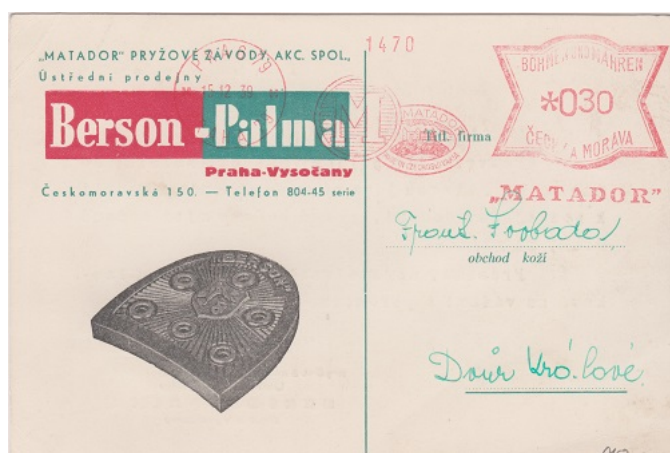 „MATADOR" PRYŽOVÉ ZÁVODY, AKC. SPOL.,
Ústřední prodejny
Berson-Palma
Praha-Vysočany
Českomoravská 150. — Telefon 804-45 serie
BERSON
PRAHA 19
15.12.39
1470
M
MATADOR
BÖHMEN UND MÄHREN
*030
ČECHY A MORAVA
Tit. firma
„MATADOR"
Frant. Svoboda,
obchod koží
Dvůr Král. lové